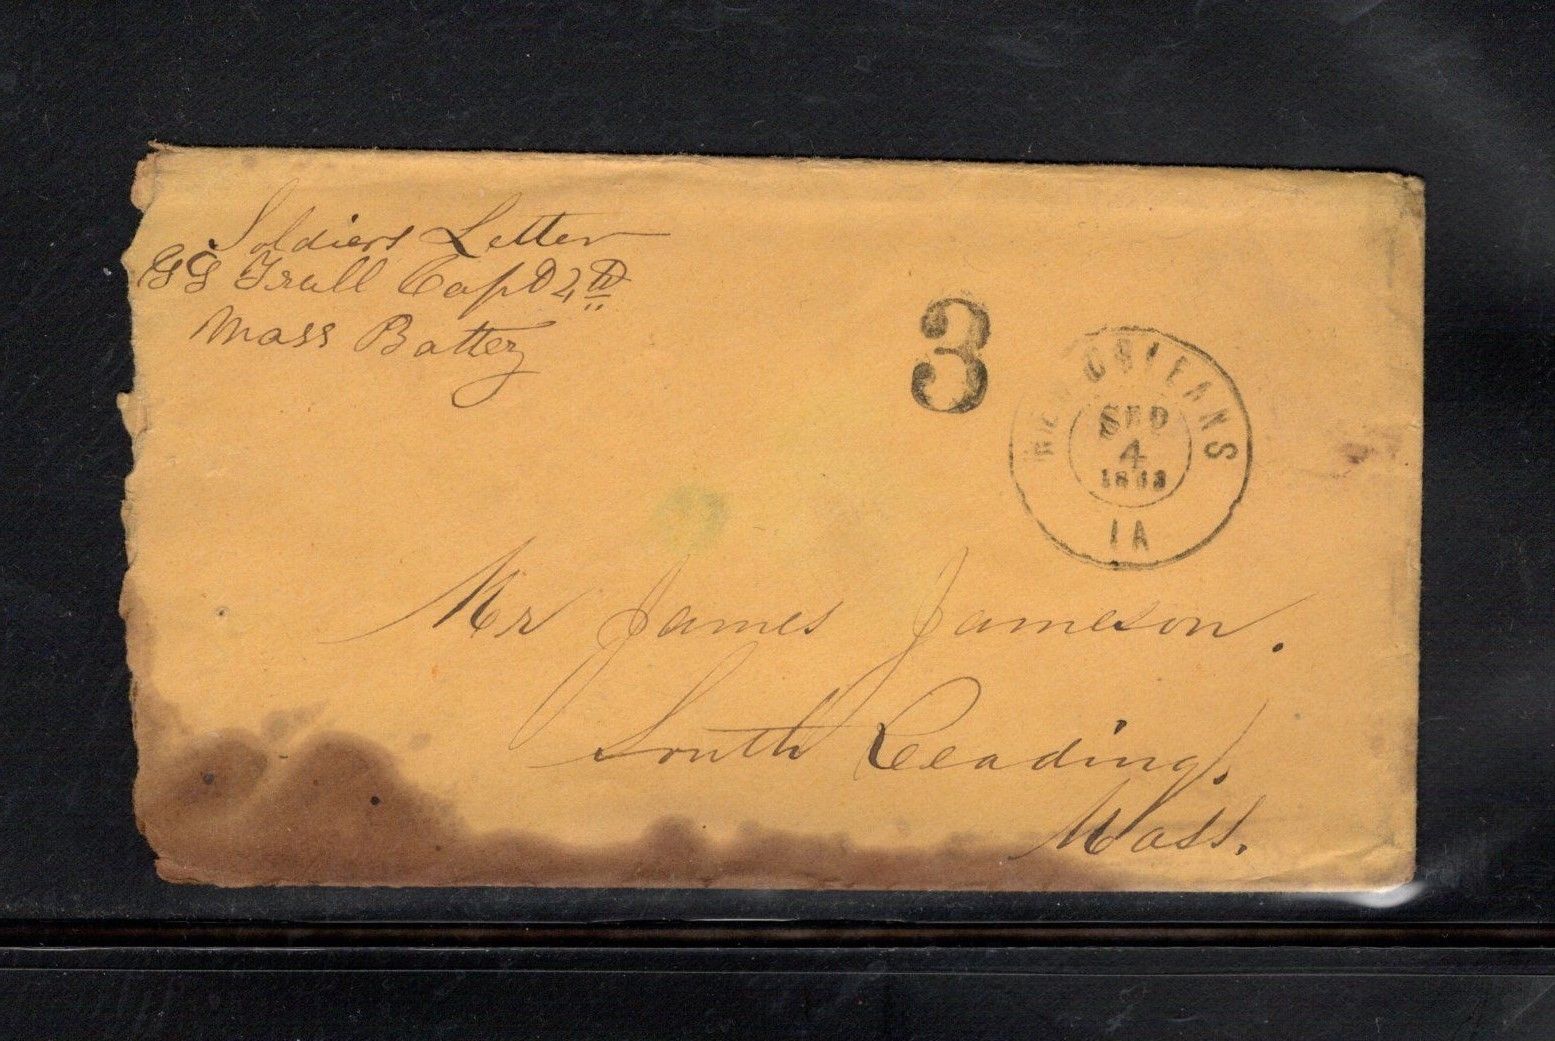 Soldiers Letter
G G Trull Capt 4th
Mass Battery
3
NEW ORLEANS
SEP
4
1863
LA
Mr James Jameson.
South Reading.
Mass.